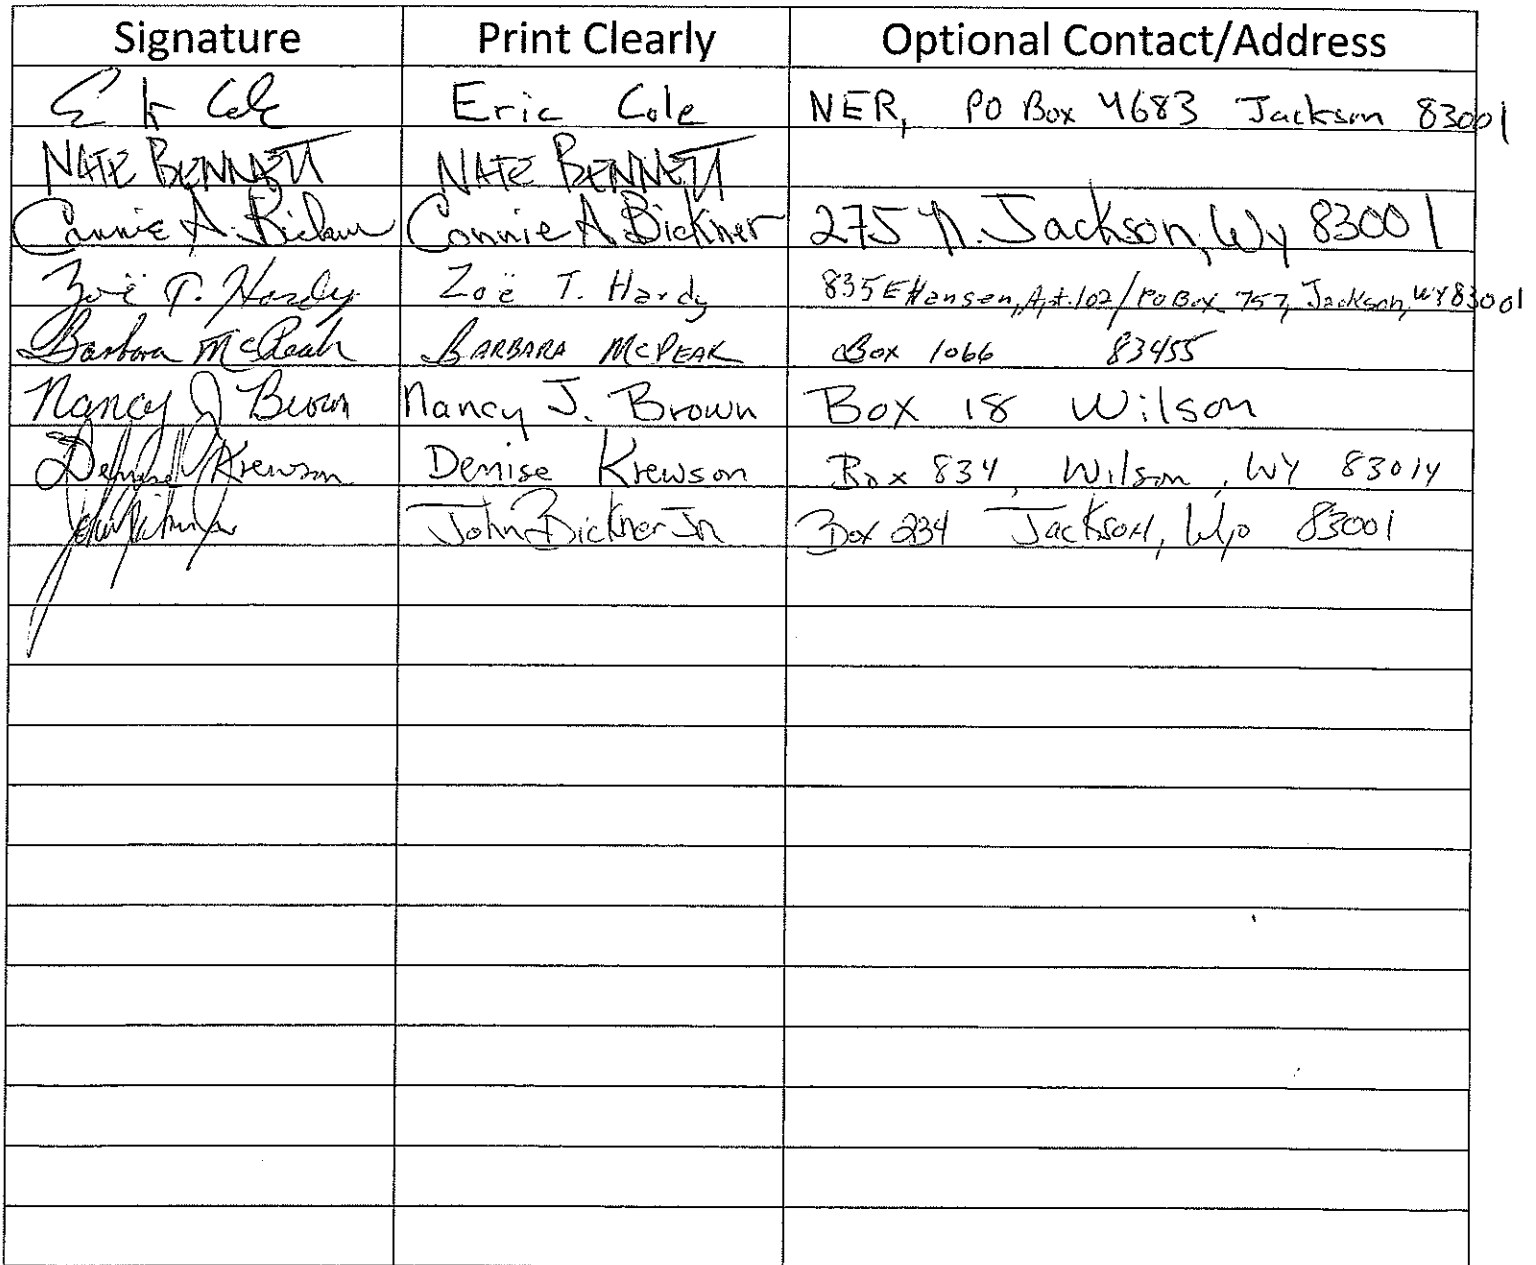 Signature Print Clearly Optional Contact/Address
Eric Cole NER, PO Box 4683 Jackson 83001
NATE BENNETT NATE BENNETT
Connie A. Bickner Connie A Bickner 275 N. Jackson, Wy 83001
Zoë T. Hardy Zoë T. Hardy 835 E Hansen, Apt. 102/PO Box 757, Jackson, WY 83001
Barbara McPeak BARBARA MCPEAK Box 1066 83455
Nancy J Brown Nancy J. Brown Box 18 Wilson
Denise Krewson Denise Krewson Box 834, Wilson, WY 83014
John Bickner Jr Box 234 Jackson, Wyo 83001